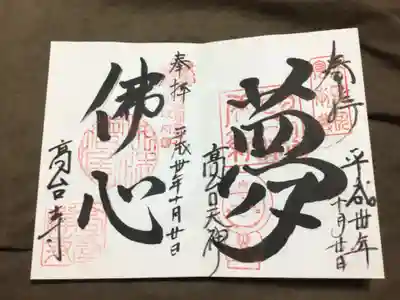 奉拝
夢
平成卅年十月廿日
高台天神
奉拝
佛心
平成卅年十月廿日
高台寺